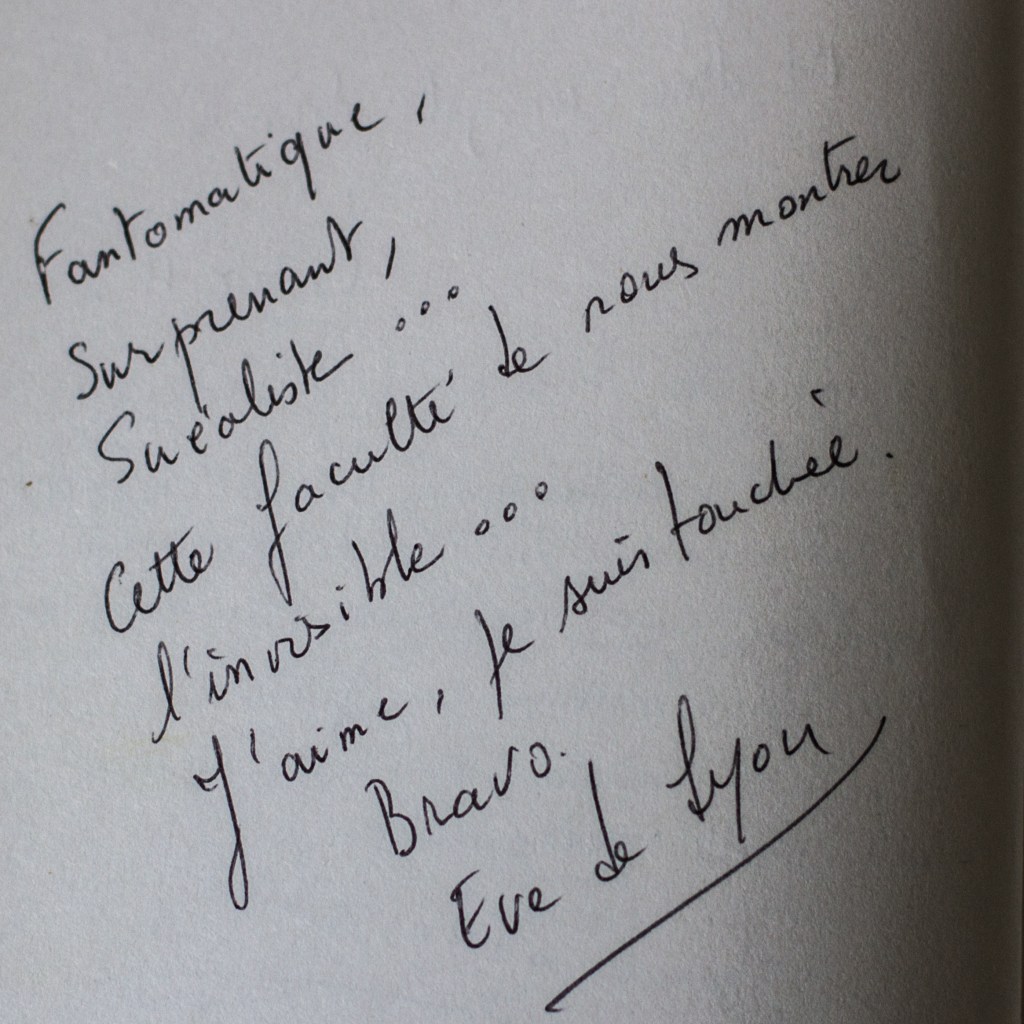 Fantomatique,
Surprenant,
Surréaliste ...
Cette faculté de nous montrer
l'invisible ...
J'aime, je suis touchée.
Bravo.
Eve de Lyon